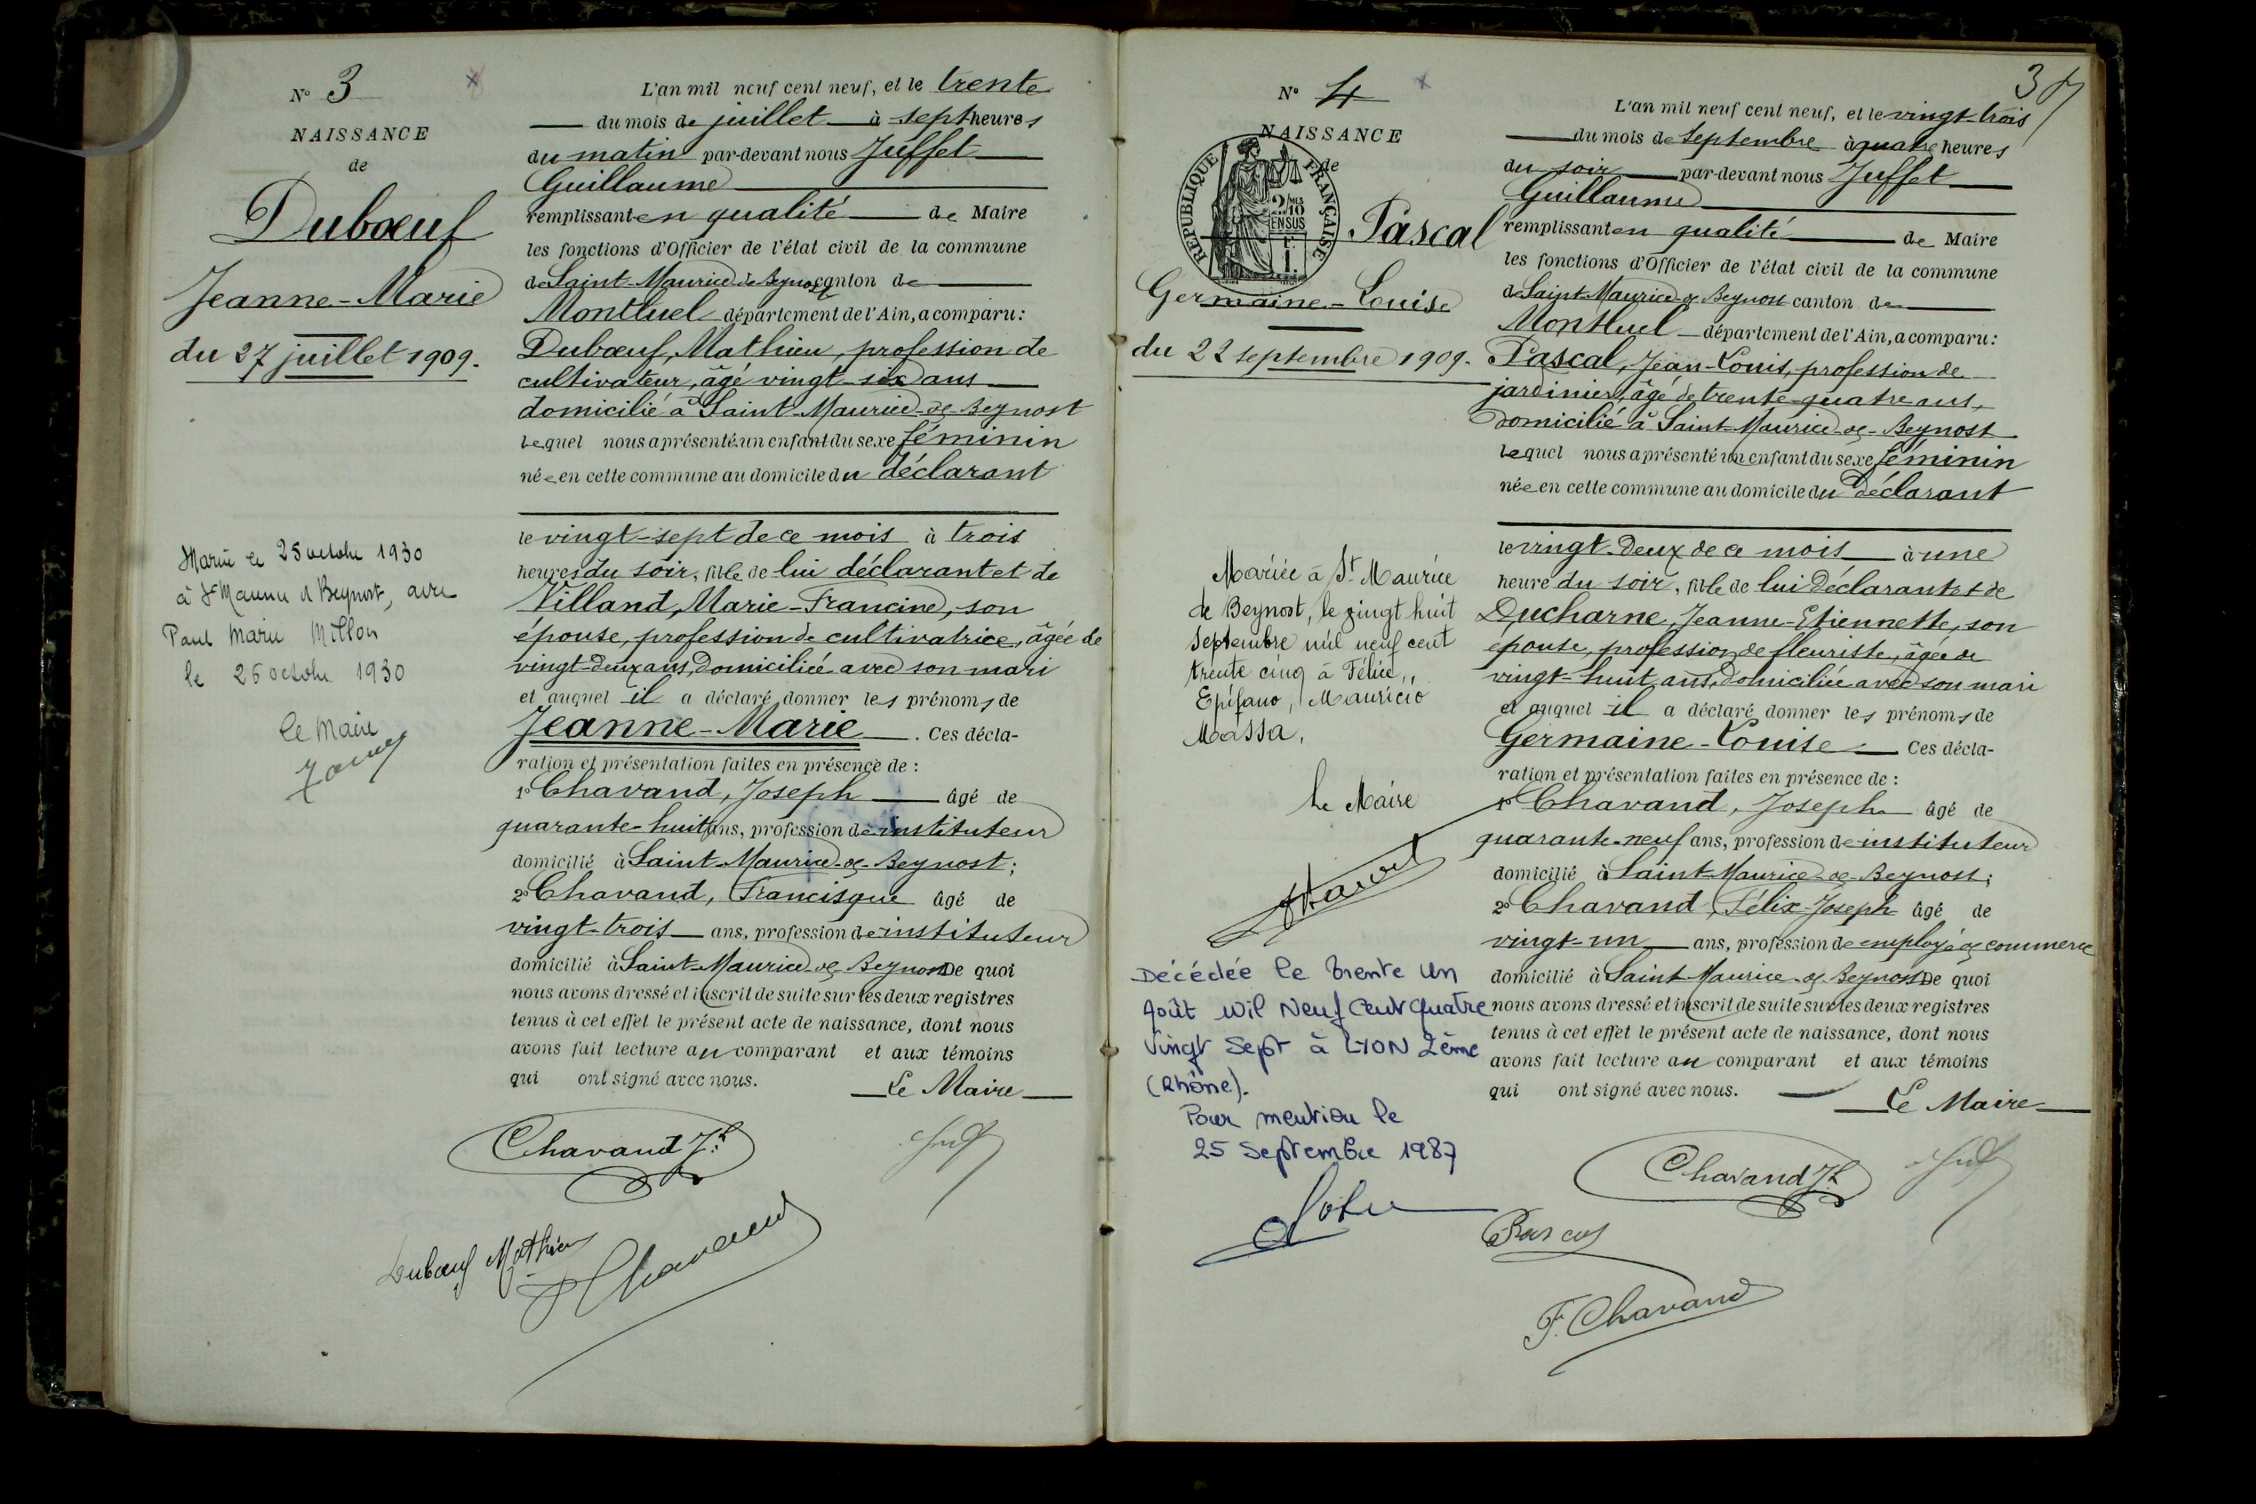 N° 3
NAISSANCE
de
Dubœuf
Jeanne-Marie
du 27 juillet 1909.
Marié le 25 octobre 1930
à St Maurice d Beynost, avec
Paul Marie Millon
le 26 octobre 1930
Le Maire
L'an mil neuf cent neuf, et le trente
du mois de juillet à sept heures
du matin par-devant nous Juffet
Guillaume
remplissant en qualité de Maire
les fonctions d'Officier de l'état civil de la commune
de Saint-Maurice-de-Beynost canton de
Montluel département de l'Ain, a comparu :
Dubœuf, Mathieu, profession de
cultivateur, âgé vingt-six ans
domicilié à Saint-Maurice-de-Beynost
lequel nous a présenté un enfant du sexe féminin
née en cette commune au domicile du déclarant
le vingt-sept de ce mois à trois
heures du soir, fille de lui déclarant et de
Villand, Marie-Francine, son
épouse, profession de cultivatrice, âgée de
vingt-deux ans, domiciliée avec son mari
et auquel il a déclaré donner les prénoms de
Jeanne-Marie. Ces décla-
ration et présentation faites en présence de :
1° Chavand, Joseph âgé de
quarante-huit ans, profession de instituteur
domicilié à Saint-Maurice-de-Beynost ;
2° Chavand, Francisque âgé de
vingt-trois ans, profession de instituteur
domicilié à Saint-Maurice-de-Beynost De quoi
nous avons dressé et inscrit de suite sur les deux registres
tenus à cet effet le présent acte de naissance, dont nous
avons fait lecture au comparant et aux témoins
qui ont signé avec nous.
Le Maire
Chavand Jh
Dubœuf Mathieu
Chavand
37
N° 4
NAISSANCE
de
REPUBLIQUE FRANÇAISE
2/10
EN SUS
Pascal
Germaine-Louise
du 22 septembre 1909.
Mariée à St Maurice
de Beynost, le vingt huit
Septembre mil neuf cent
trente cinq à Félice,
Epifano, Mauricio
Massa.
Le Maire
Décédée le trente un
Août mil Neuf Cent Quatre
Vingt Sept à LYON 2ème
(Rhône).
Pour mention le
25 Septembre 1987
L'an mil neuf cent neuf, et le vingt-trois
du mois de septembre à quatre heures
du soir par-devant nous Juffet
Guillaume
remplissant en qualité de Maire
les fonctions d'Officier de l'état civil de la commune
de Saint-Maurice-de-Beynost canton de
Montluel département de l'Ain, a comparu :
Pascal, Jean-Louis, profession de
jardinier, âgé de trente-quatre ans,
domicilié à Saint-Maurice-de-Beynost
lequel nous a présenté un enfant du sexe féminin
née en cette commune au domicile du déclarant
le vingt-deux de ce mois à une
heure du soir, fille de lui déclarant et de
Ducharne, Jeanne-Etiennette, son
épouse, profession de fleuriste, âgée de
vingt-huit ans, domiciliée avec son mari
et auquel il a déclaré donner les prénoms de
Germaine-Louise Ces décla-
ration et présentation faites en présence de :
1° Chavand, Joseph âgé de
quarante-neuf ans, profession de instituteur
domicilié à Saint-Maurice-de-Beynost ;
2° Chavand, Félix-Joseph âgé de
vingt-un ans, profession de employé de commerce
domicilié à Saint-Maurice-de-Beynost De quoi
nous avons dressé et inscrit de suite sur les deux registres
tenus à cet effet le présent acte de naissance, dont nous
avons fait lecture au comparant et aux témoins
qui ont signé avec nous.
Le Maire
Chavand Jh
Pascal
F. Chavand